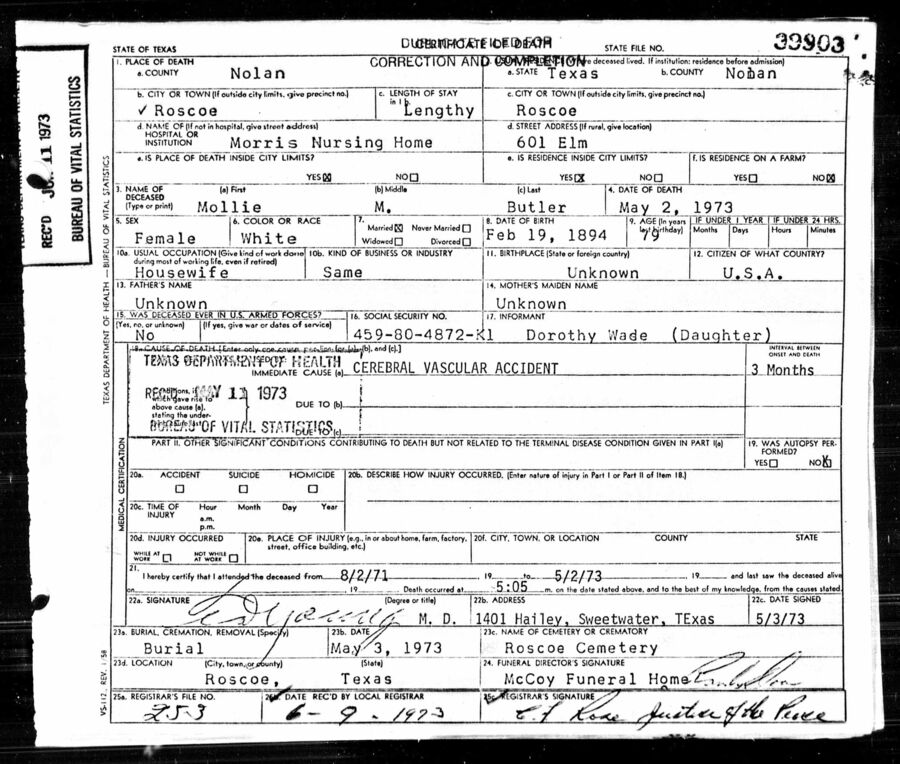 DUPLICATE FILED FOR
STATE OF TEXAS CERTIFICATE OF DEATH STATE FILE NO. 39903
CORRECTION AND COMPLETION
1. PLACE OF DEATH deceased lived. If institution: residence before admission)
a. COUNTY Nolan a. STATE Texas b. COUNTY Nolan
b. CITY OR TOWN (If outside city limits, give precinct no.) c. LENGTH OF STAY in 1 b. c. CITY OR TOWN (If outside city limits, give precinct no.)
✓ Roscoe Lengthy Roscoe
d. NAME OF (If not in hospital, give street address) d. STREET ADDRESS (If rural, give location)
HOSPITAL OR
INSTITUTION Morris Nursing Home 601 Elm
e. IS PLACE OF DEATH INSIDE CITY LIMITS? e. IS RESIDENCE INSIDE CITY LIMITS? f. IS RESIDENCE ON A FARM?
YES☒ NO☐ YES☒ NO☐ YES☐ NO☒
3. NAME OF DECEASED (Type or print) (a) First (b) Middle (c) Last 4. DATE OF DEATH
Mollie M. Butler May 2, 1973
5. SEX 6. COLOR OR RACE 7. Married☒ Never Married☐ 8. DATE OF BIRTH 9. AGE (In years last birthday) IF UNDER 1 YEAR IF UNDER 24 HRS.
Months Days Hours Minutes
Female White Widowed☐ Divorced☐ Feb 19, 1894 79
10a. USUAL OCCUPATION (Give kind of work done during most of working life, even if retired) 10b. KIND OF BUSINESS OR INDUSTRY 11. BIRTHPLACE (State or foreign country) 12. CITIZEN OF WHAT COUNTRY?
Housewife Same Unknown U.S.A.
13. FATHER'S NAME 14. MOTHER'S MAIDEN NAME
Unknown Unknown
15. WAS DECEASED EVER IN U.S. ARMED FORCES? 16. SOCIAL SECURITY NO. 17. INFORMANT
(Yes, no, or unknown) (If yes, give war or dates of service)
No 459-80-4872-K1 Dorothy Wade (Daughter)
18. CAUSE OF DEATH [Enter only one cause per line for (a), (b), and (c).] INTERVAL BETWEEN ONSET AND DEATH
TEXAS DEPARTMENT OF HEALTH
IMMEDIATE CAUSE (a) CEREBRAL VASCULAR ACCIDENT 3 Months
REC'D MAY 11 1973
Conditions, if any, which gave rise to above cause (a), stating the under- DUE TO (b)
BUREAU OF VITAL STATISTICS
DUE TO (c)
PART II. OTHER SIGNIFICANT CONDITIONS CONTRIBUTING TO DEATH BUT NOT RELATED TO THE TERMINAL DISEASE CONDITION GIVEN IN PART I(a) 19. WAS AUTOPSY PERFORMED?
YES☐ NO☒
20a. ACCIDENT SUICIDE HOMICIDE 20b. DESCRIBE HOW INJURY OCCURRED. (Enter nature of injury in Part I or Part II of Item 18.)
☐ ☐ ☐
20c. TIME OF INJURY Hour Month Day Year
a.m.
p.m.
20d. INJURY OCCURRED 20e. PLACE OF INJURY (e.g., in or about home, farm, factory, street, office building, etc.) 20f. CITY, TOWN, OR LOCATION COUNTY STATE
WHILE AT WORK ☐ NOT WHILE AT WORK ☐
21.
I hereby certify that I attended the deceased from 8/2/71 19 to 5/2/73 19 and last saw the deceased alive
on 19 Death occurred at 5:05 m. on the date stated above, and to the best of my knowledge, from the causes stated.
22a. SIGNATURE (Degree or title) 22b. ADDRESS 22c. DATE SIGNED
M. D. 1401 Hailey, Sweetwater, TExas 5/3/73
23a. BURIAL, CREMATION, REMOVAL (Specify) 23b. DATE 23c. NAME OF CEMETERY OR CREMATORY
Burial May 3, 1973 Roscoe Cemetery
23d. LOCATION (City, town, or county) (State) 24. FUNERAL DIRECTOR'S SIGNATURE
Roscoe, Texas McCoy Funeral Home
25a. REGISTRAR'S FILE NO. 25b. DATE REC'D BY LOCAL REGISTRAR 25c. REGISTRAR'S SIGNATURE
253 6-9-1973 Justice of the Peace
REC'D JUN 11 1973
BUREAU OF VITAL STATISTICS
TEXAS DEPARTMENT OF HEALTH—BUREAU OF VITAL STATISTICS
MEDICAL CERTIFICATION
VS-112, REV. 1/58